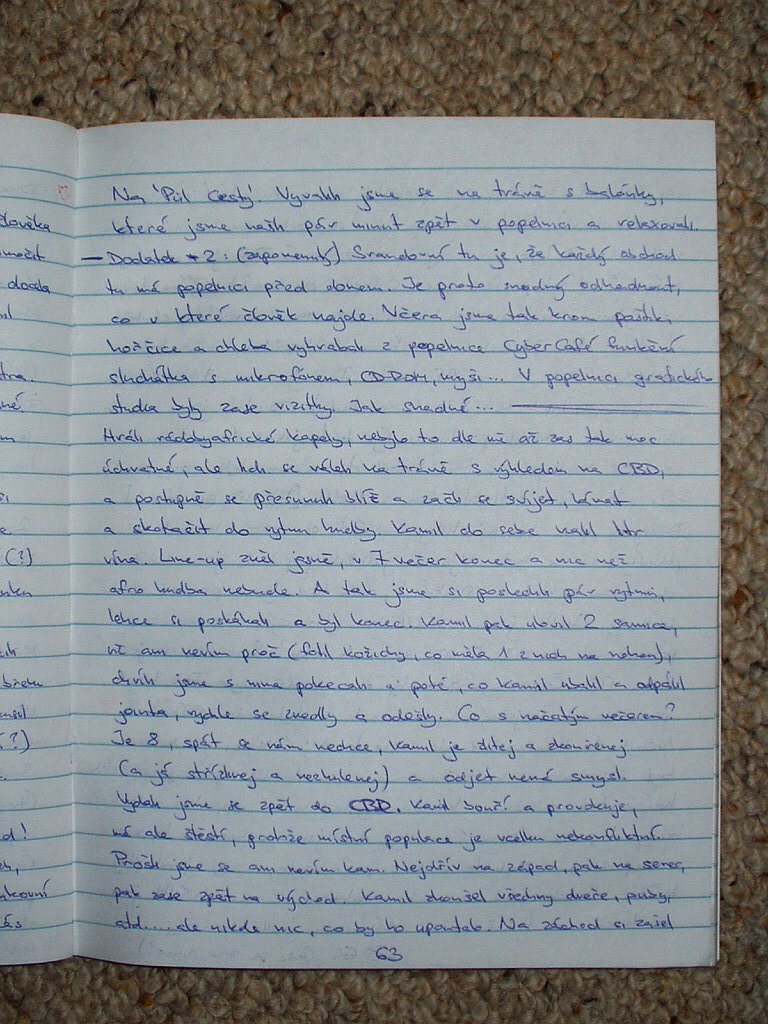 Na 'Půl Cesty'. Vyvalili jsme se na trávě s balónky,
které jsme našli pár minut zpět v popelnici a relaxovali.
člověka
— Dodatek #2: (zapomenutý) Srandovní tu je, že každý obchod
tu má popelnici před domem. Je proto snadný odhadnout,
co v které člověk najde. Včera jsme tak krom paštik,
hořčice a chleba vyhrabali z popelnice CyberCafé funkční
sluchátka s mikrofónem, CD-ROM, myši... V popelnici grafického
studia byly zase vizitky. Jak snadné...
Hráli rádobyafrické kapely, nebylo to dle mě až zas tak moc
úchvatné, ale lidi se váleli na trávě s výhledem na CBD,
a postupně se přesunuli blíž a začli se svíjet, kývat
a skotačit do rytmu hudby. Kamil do sebe nalil litr
vína. Line-up zněl jasně, v 7 večer konec a nic než
(?)
afro hudba nebude. A tak jsme si poslední pár rytmů,
lehce si poskákali a byl konec. Kamil pak ulovil 2 samice,
už ani nevím proč (fohl kožichy, co měla 1 z nich na nohou),
chvíli jsme s nima pokecali a poté, co Kamil ubalil a odpálil
jointa, rychle se zvedly a odešly. Co s načatým večerem?
Je 8, spát se nám nechce, Kamil je zlitej a zkouřenej
(?)
(a já střízlivej a nezhulenej) a odjet nemá smysl.
Vydali jsme se zpět do CBD. Kamil bouří a provokuje,
d!
má ale štěstí, protože místní populace je vcelku nekonfliktní.
Prošli jsme se ani nevím kam. Nejdřív na západ, pak na sever,
pak zase zpět na východ. Kamil zkoušel všechny dveře, puby,
atd..... ale nikde nic, co by ho upoutalo. Na záchod si zašel
63